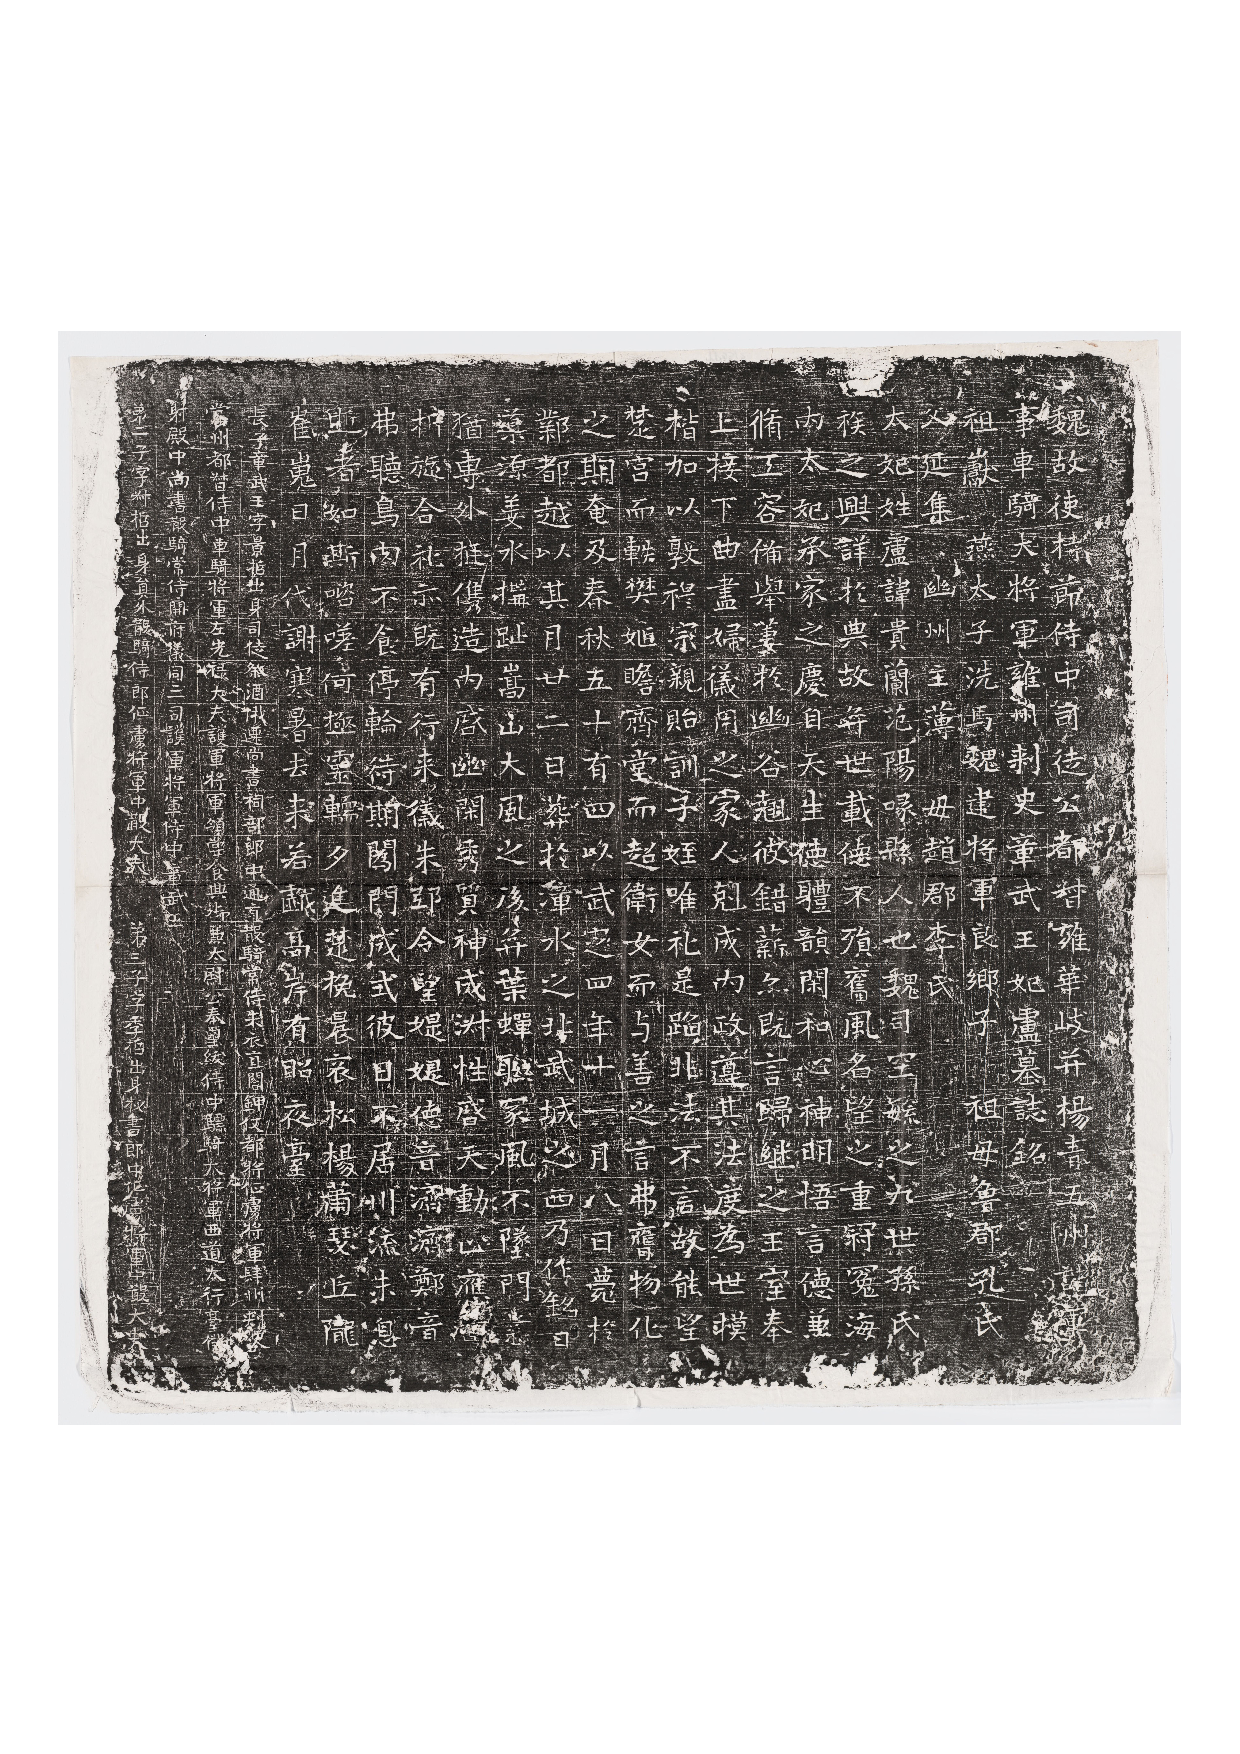 魏故使持節侍中司徒公都督雍華岐并楊青五州諸軍
事車騎大將軍雍州刺史章武王妃盧墓誌銘
祖巘 燕太子洗馬魏建將軍良鄉子 祖母魯郡孔氏
父延集 幽州主薄 母趙郡李氏
太妃姓盧諱貴蘭范陽涿縣人也魏司空毓之九世孫氏
族之興詳於典故弈世載德不殞舊風名望之重冠冕海
內太妃承家之慶自天生德體韻閑和心神明悟言德兼
脩工容備舉萋於幽谷翹彼錯薪亦既言歸繼之王室奉
上接下曲盡婦儀用之家人剋成內政遵其法度為世模
楷加以敦穆宗親貽訓子姪唯礼是蹈非法不言故能望
楚宮而軼樊姬瞻齊堂而超衛女而与善之言弗膺物化
之期奄及春秋五十有四以武定四年十一月八日薨於
鄴都越以其月廿二日葬於漳水之北武城之西乃作銘曰
藥源姜水構趾嵩山大風之後弈葉蟬聯家風不墜門
猶專外挺儁造內盛幽閑秀質神成淵性啓天動止應
折旋合礼示既有行来儀朱邸令望媞媞德音濟濟鄭音
弗聽鳥肉不食停輪待期闔門成式彼日不居川流未息
逝者如斯咨嗟何極靈轜夕進楚挽晨哀松楊蕭瑟丘隴
崔嵬日月代謝寒暑去来若毀高岸有昭夜臺
長子章武王字景哲出身司徒祭酒俄遷尚書祠部郎中通直散騎常侍朱衣直閤鉀仗都將征虜將軍肆州刺史
當州都督侍中車騎將軍左光祿大夫護軍將軍領嘗食典御兼太尉公奉璽綬侍中驃騎大將軍西道大行臺僕
射殿中尚書散騎常侍開府儀同三司護軍將軍侍中章武王
第二子字叔哲出身員外散騎侍郎征虜將軍中散大夫 第三子字季哲出身秘書郎中征虜將軍中散大夫